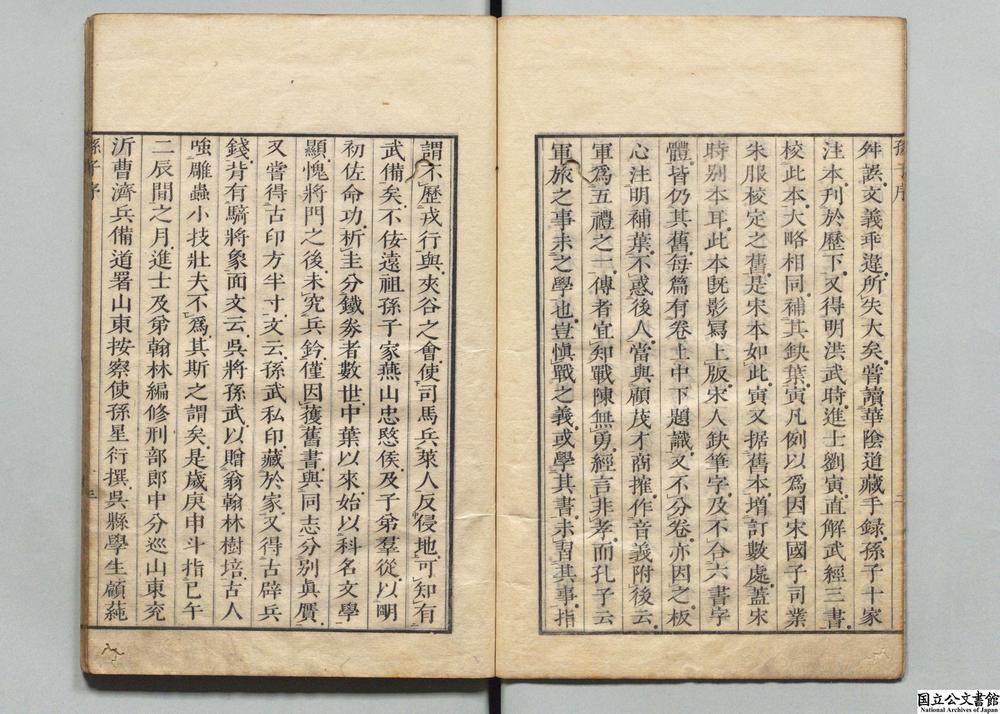 舛誤文義乖違所失大矣嘗讀華陰道藏手録孫子十家
注本刊於歷下又得明洪武時進士劉寅直解武經三書
校此本大略相同補其缺葉寅凡例以爲因宋國子司業
朱服校定之舊是宋本如此寅又据舊本增訂數處蓋宋
時别本耳此本既影寫上版宋人缺筆字及不合六書字
體皆仍其舊每篇有卷上中下題識又不分卷亦因之板
心注明補葉不惑後人當與顧茂才商搉作音義附後云
軍爲五禮之一傳者宜知戰陳無勇經言非孝而孔子云
軍旅之事未之學也豈愼戰之義或學其書未習其事指
謂不歷戎行與夾谷之會使司馬兵萊人反侵地可知有
武備矣不佞遠祖孫子家燕山忠愍侯及子弟羣從以明
初佐命功析圭分鐵劵者數世中葉以來始以科名文學
顯愧將門之後未究兵鈐僅因獲舊書與同志分别眞贋
又嘗得古印方半寸文云孫武私印藏於家又得古辟兵
錢背有騎將象面文云吳將孫武以贈翁翰林樹培古人
嗤雕蟲小技壯夫不爲其斯之謂矣是歲庚申斗指巳午
二辰閒之月進士及弟翰林編修刑部郎中分巡山東兖
沂曹濟兵備道署山東按察使孫星衍撰吳縣學生顧蒓
孫子序
二
孫子序
三
国立公文書館
National Archives of Japan